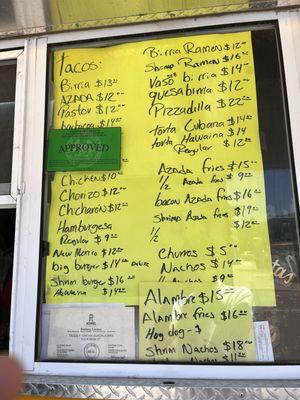 Tacos:
Birria $13.00
AZADA $12.00
Pastor $12.00
barbacoa $14
APPROVED
Chicken $10.00
Chorizo $12.00
Chicharon $12.00
Hamburgesa
Regular $9.00
New Mexico $12.00
big burger $14.00
Shrim burger $16.00
Hawaiana $14.00
Birria Ramen $12.00
Shrimp Ramen $16.00
Vaso birria $14.00
quesabirria $12.00
Pizzadilla $22.00
torta Cubana $14.00
torta Hawaina $14
Regular $12.00
Azada fries $15.00
1/2 Azada fries $9.00
bacon Azada fries $16.00
Shrimp Azada fries $19.00
1/2 $12.00
Churros $5.00
Nachos $14.00
1/2 Nachos $9.00
Alambre $15.00
Alambre fries $16.00
Hog dog - $
Shrim Nachos $18.00